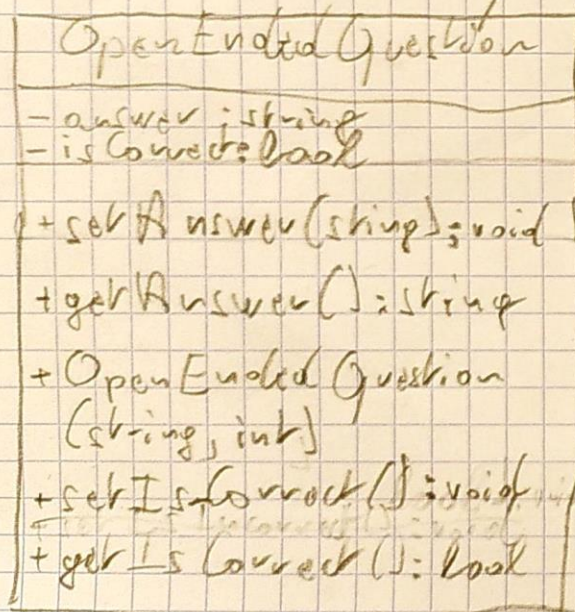 OpenEndedQuestion
- answer : string
- isCorrect: bool
+ setAnswer(string): void
+ getAnswer(): string
+ OpenEndedQuestion
(string, int)
+ setIsCorrect(): void
+ getIsCorrect(): bool